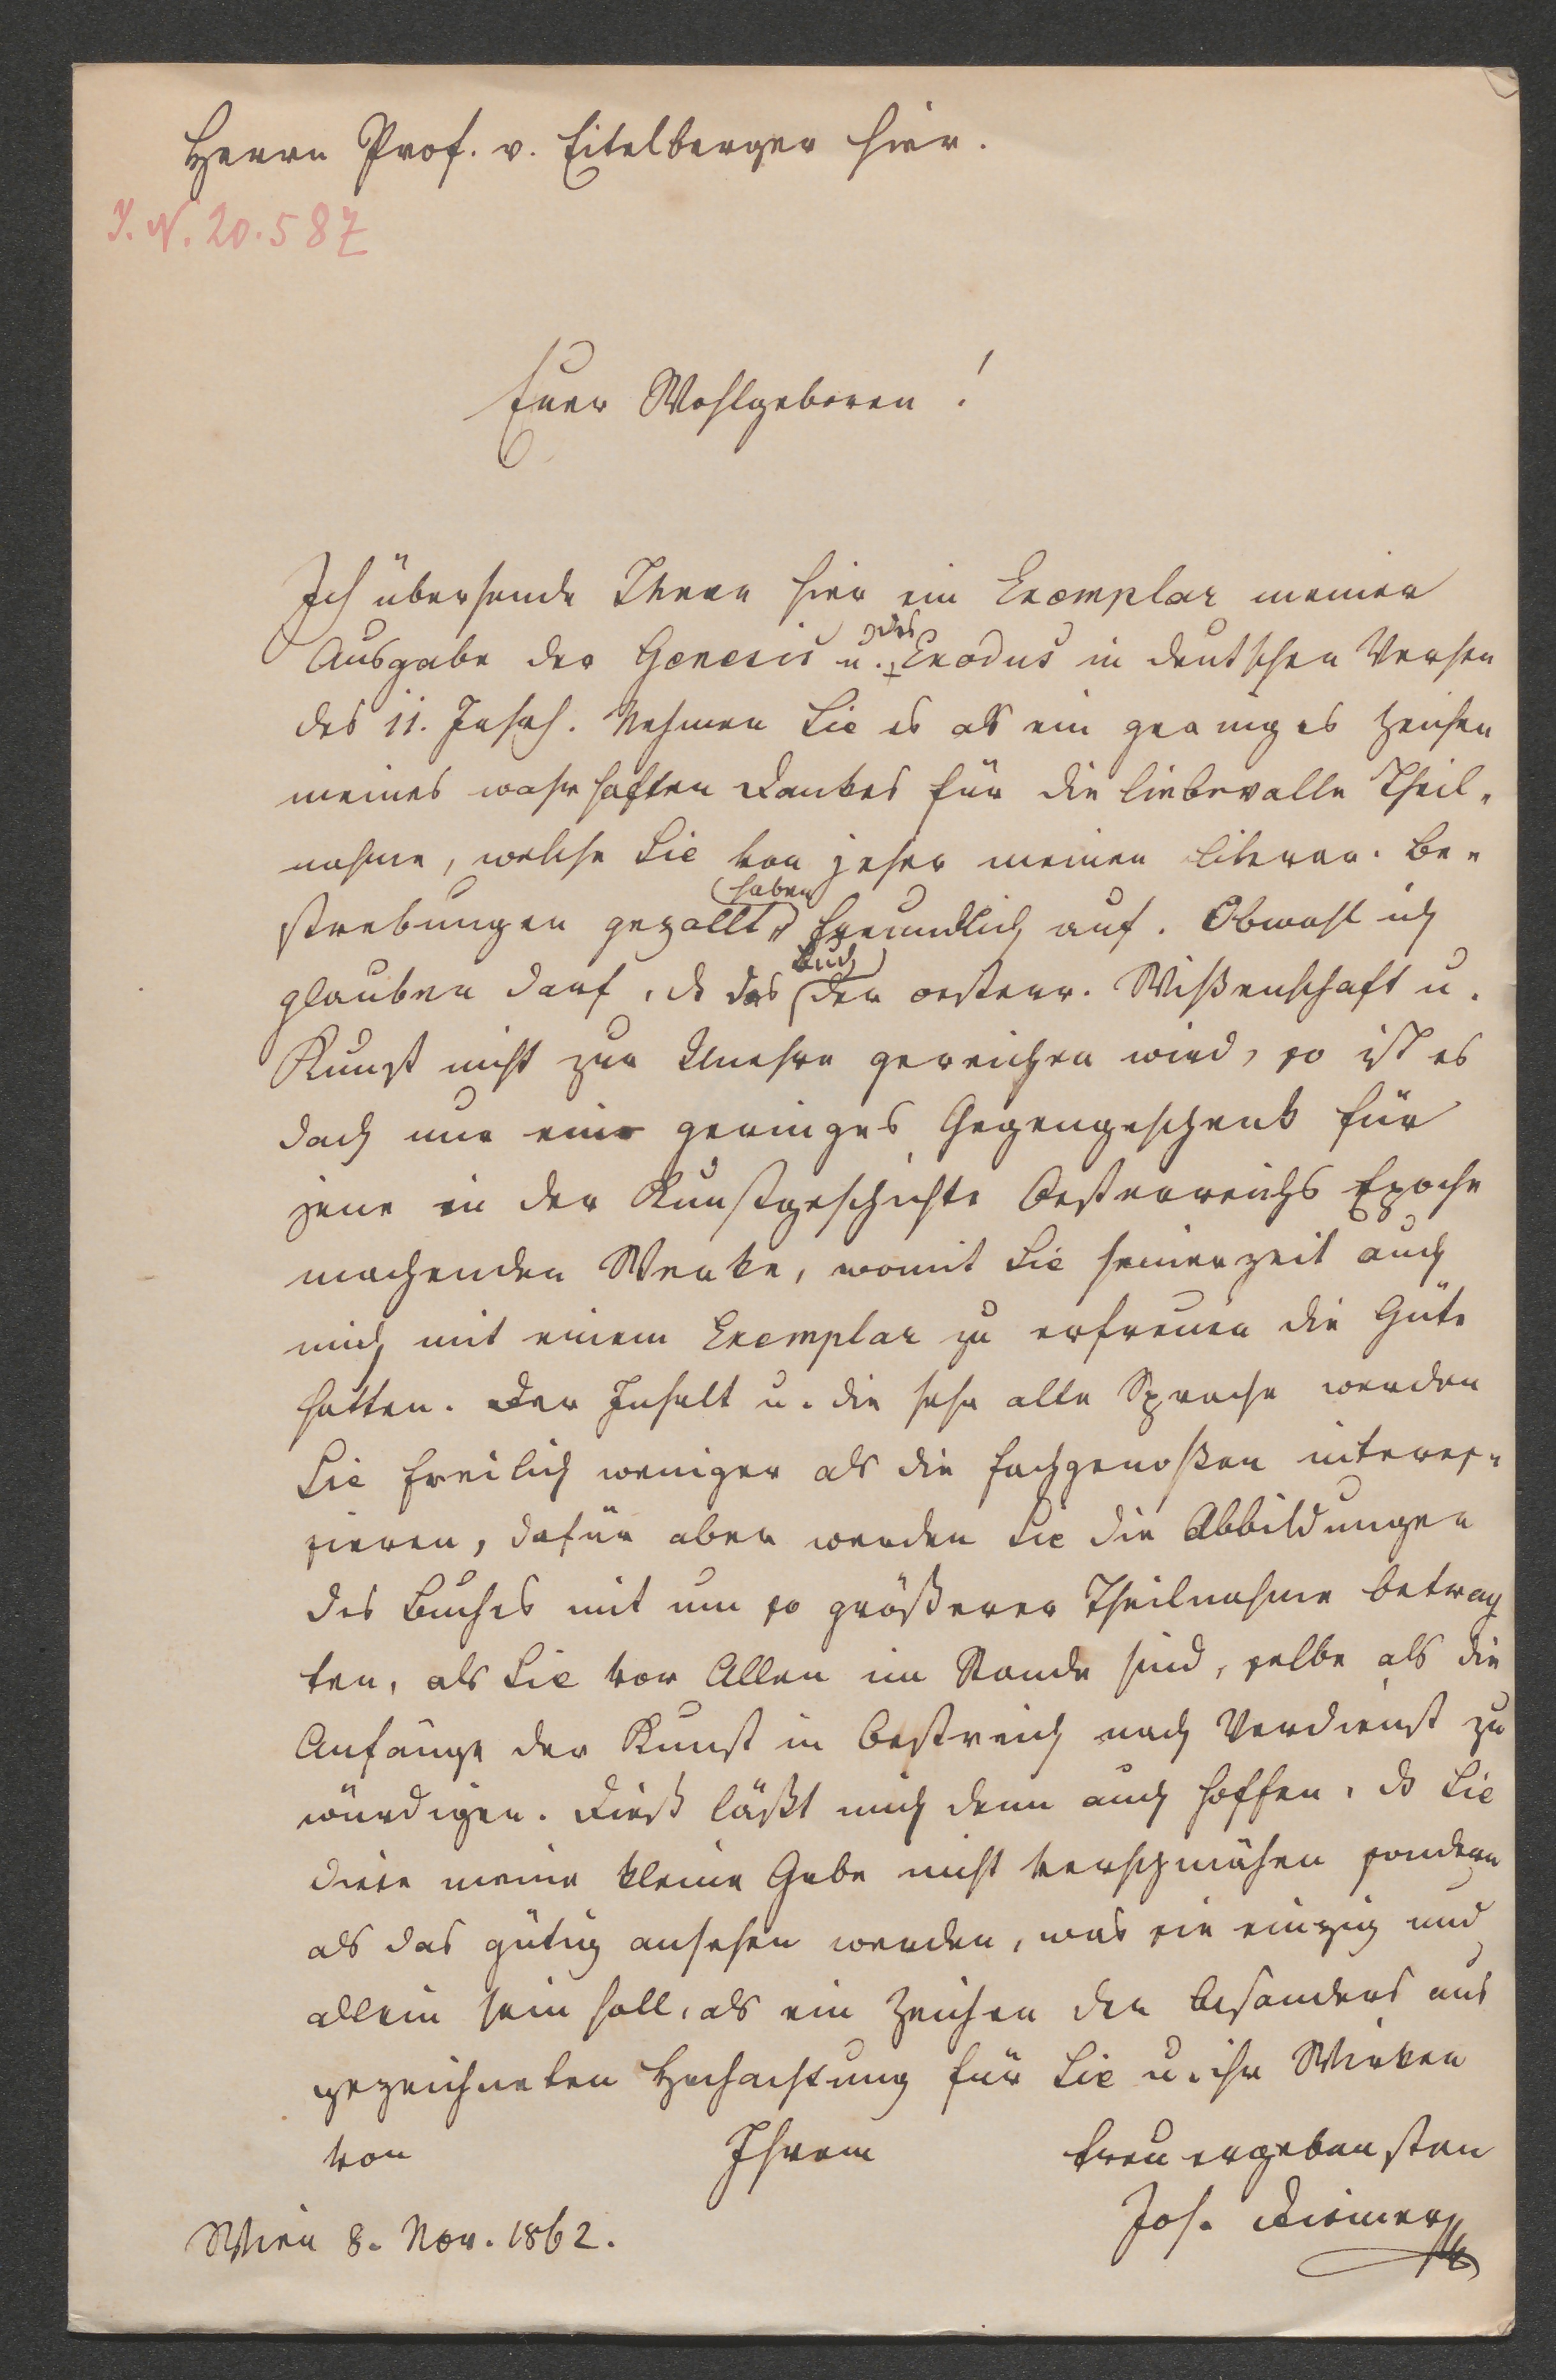 Herrn Prof. v. Eitelberger hier.
I. N. 20.587
Euer Wohlgeboren!
Ich übersende Ihnen hier ein Exemplar meiner
Ausgabe der Genesis u. des Exodus in deutschen Versen
des 11. Jahrh. Nehmen Sie es als ein geringes Zeichen
meines wahrhaften Dankes für die liebevolle Theil-
nahme, welche Sie von jeher meinen literar. Be-
strebungen gezollt haben freundlich auf. Obwohl ich
glauben darf, ds das Buch der oesterr. Wißenschaft u.
Kunst nicht zur Unehre gereichen wird, so ist es
doch nur ein geringes Gegengeschenk für
jene in der Kunstgeschichte Oesterreichs Epoche
machenden Werke, womit Sie seinerzeit auch
mich mit einem Exemplar zu erfreuen die Güte
hatten. Der Inhalt u. die sehr alte Sprache werden
Sie freilich weniger als die Fachgenoßen interes-
sieren, dafür aber werden Sie die Abbildungen
des Buches mit um so größerer Theilnahme betrach
ten, als Sie vor Allen im Stande sind, selbe als die
Anfänge der Kunst in Oestreich nach Verdienst zu
würdigen. Dieß läßt mich denn auch hoffen, ds Sie
diese meine kleine Gabe nicht verschmähen sondern
als das gütig ansehen werden, was sie einzig und
allein sein soll, als ein Zeichen der besonders aus
gezeichneten Hochachtung für Sie u. ihr Wirken
von Ihrem treu ergebensten
Jos. Diemer
Wien 8. Nov. 1862.